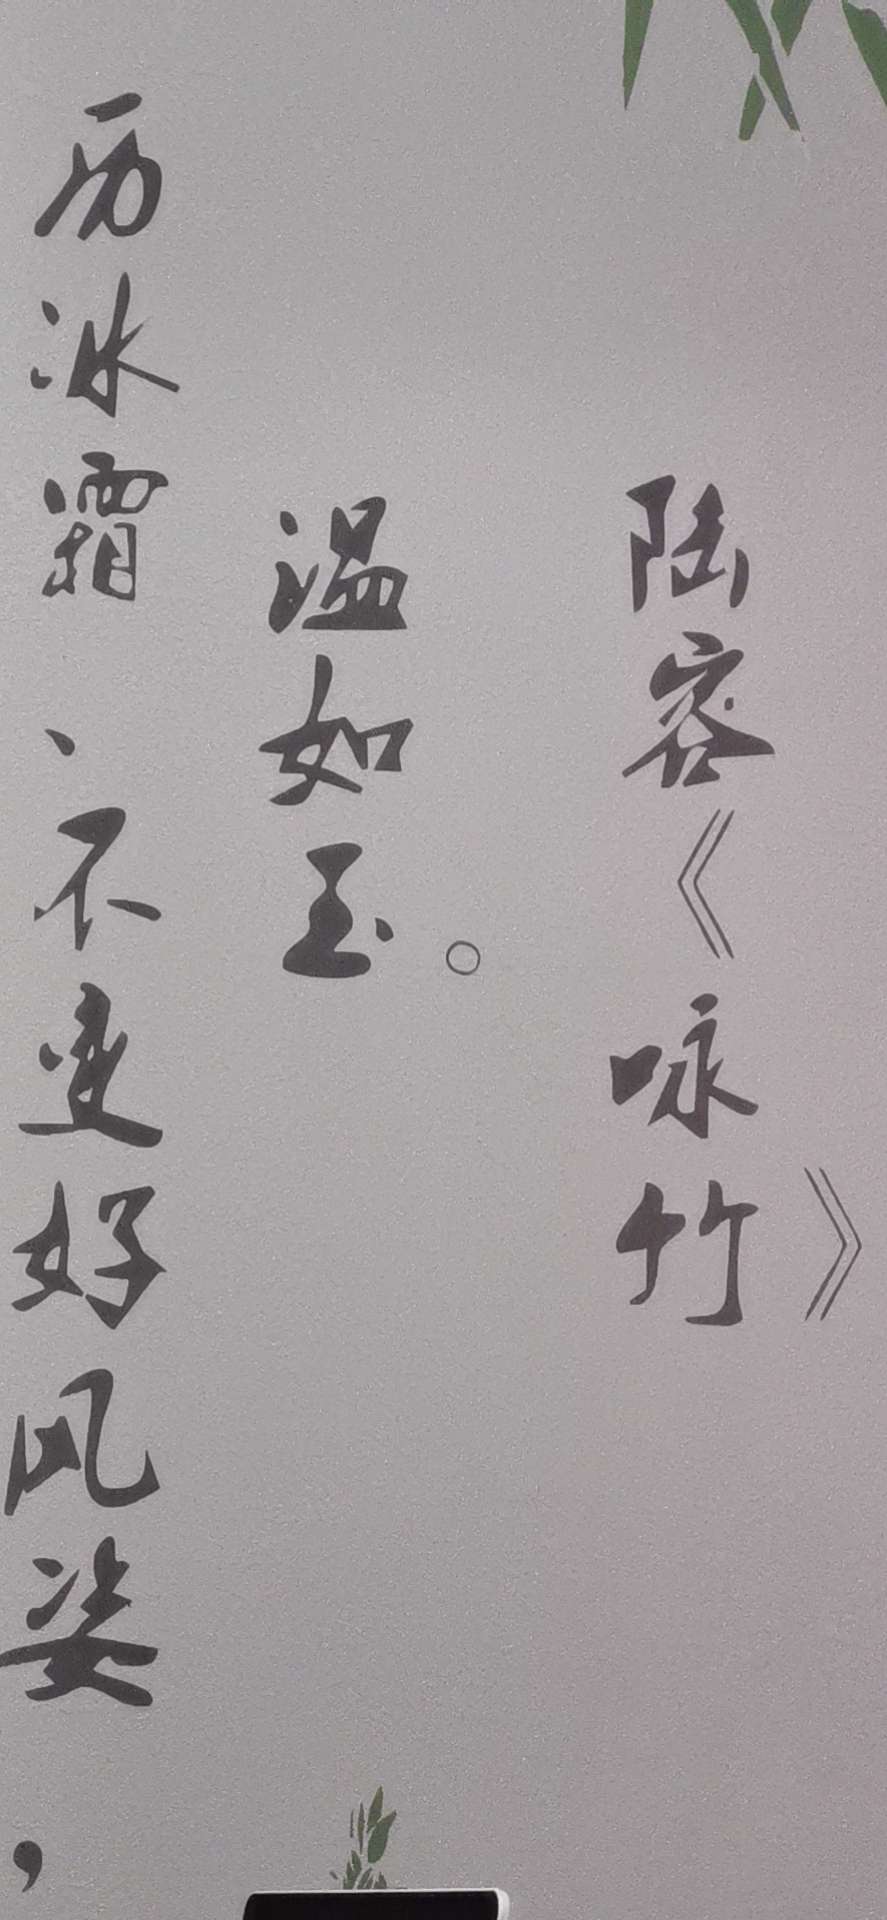 历冰霜、不变好风姿，
温如玉。
陆容《咏竹》